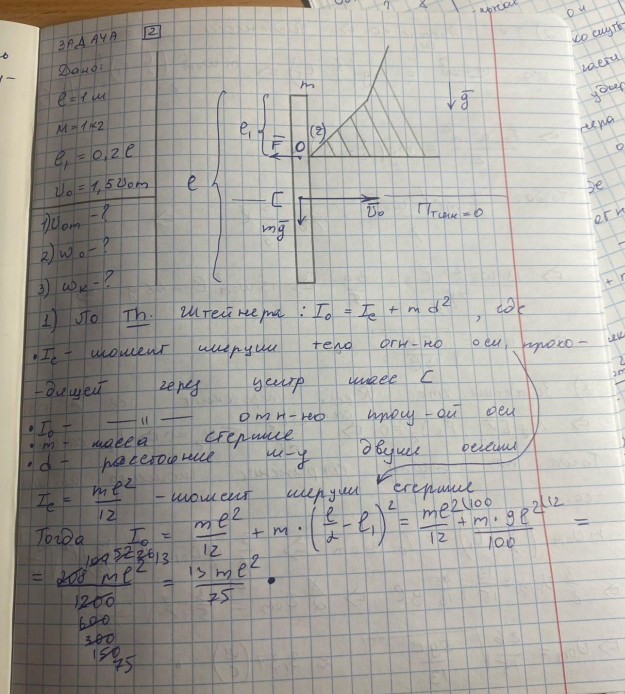 ЗАДАЧА 2
Дано:
l = 1 м
м = 1 кг
l₁ = 0,2 l
v₀ = 1,5 v₀m
1) v₀m - ?
2) ω₀ - ?
3) ωк - ?
m
l₁
F̄
O
(z)
ḡ
l
C
v̄₀
mḡ
= 0
1) По Th. Штейнера : I₀ = I_c + m d² , где
• I_c - момент инерции тело отн-но оси, прохо-
-дящей через центр масс C
• I₀ - —— " —— отн-но прош-ой оси
• m - масса стержня
• d - расстояние м-у двумя осями
I_c = ml²/12 - момент инерции стержня
Тогда I₀ = ml²/12 + m · (l/2 - l₁)² = ml²\100/12 + m · 9l²\12/100 =
= 208 104 52 26 13 ml²/1200 600 300 150 75 = 13 ml²/75 •